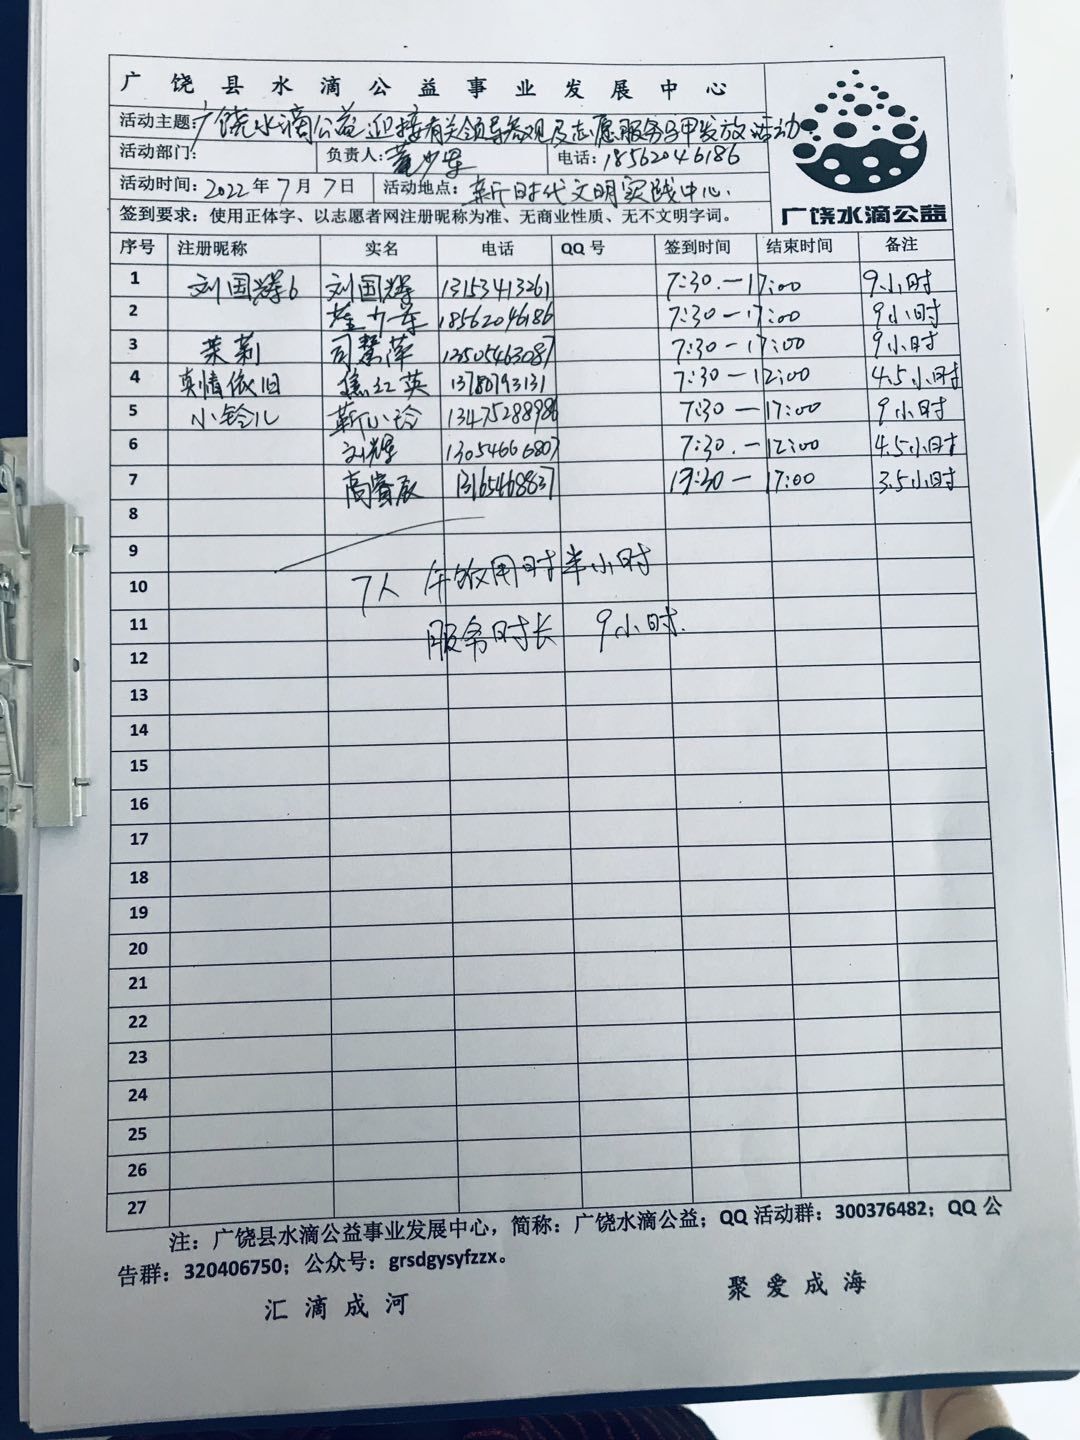 广饶县水滴公益事业发展中心
活动主题：广饶水滴公益迎接有关领导参观及志愿服务马甲发放活动
活动部门： 负责人：董少军 电话：18562046186
活动时间：2022年7月7日 活动地点：新时代文明实践中心.
签到要求：使用正体字、以志愿者网注册昵称为准、无商业性质、无不文明字词。
广饶水滴公益
序号 注册昵称 实名 电话 QQ 号 签到时间 结束时间 备注
1 刘国辉6 刘国辉 13153413261 7:30.—17:00 9小时
2 董少军 18562046186 7:30—17:00 9小时
3 茉莉 司慧萍 13505463087 7:30—17:00 9小时
4 真情依旧 焦红英 13780793131 7:30—12:00 4.5小时
5 小铃儿 靳小玲 13475288986 7:30—17:00 9小时
6 刘辉 13054666807 7:30.—12:00 4.5小时
7 高 13165468837 13:30—17:00 3.5小时
8
9
10 7人 午饭用时半小时
11 服务时长 9小时.
12
13
14
15
16
17
18
19
20
21
22
23
24
25
26
27
注：广饶县水滴公益事业发展中心，简称：广饶水滴公益；QQ 活动群：300376482；QQ 公
告群：320406750；公众号：grsdgysyfzzx。
汇滴成河 聚爱成海